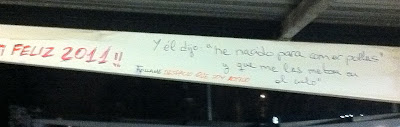 FELIZ 2011!!
Y él dijo: "he nacido para comer pollas
y que me las metan en
el culo"